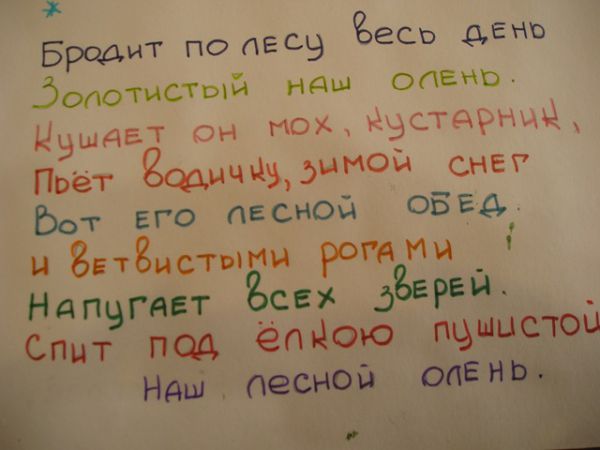 Бродит по лесу весь день
Золотистый наш олень.
Кушает он мох, кустарник,
Пьёт водичку, зимой снег
Вот его лесной обед.
и ветвистыми рогами
Напугает всех зверей.
Спит под ёлкою пушистой
Наш лесной олень.